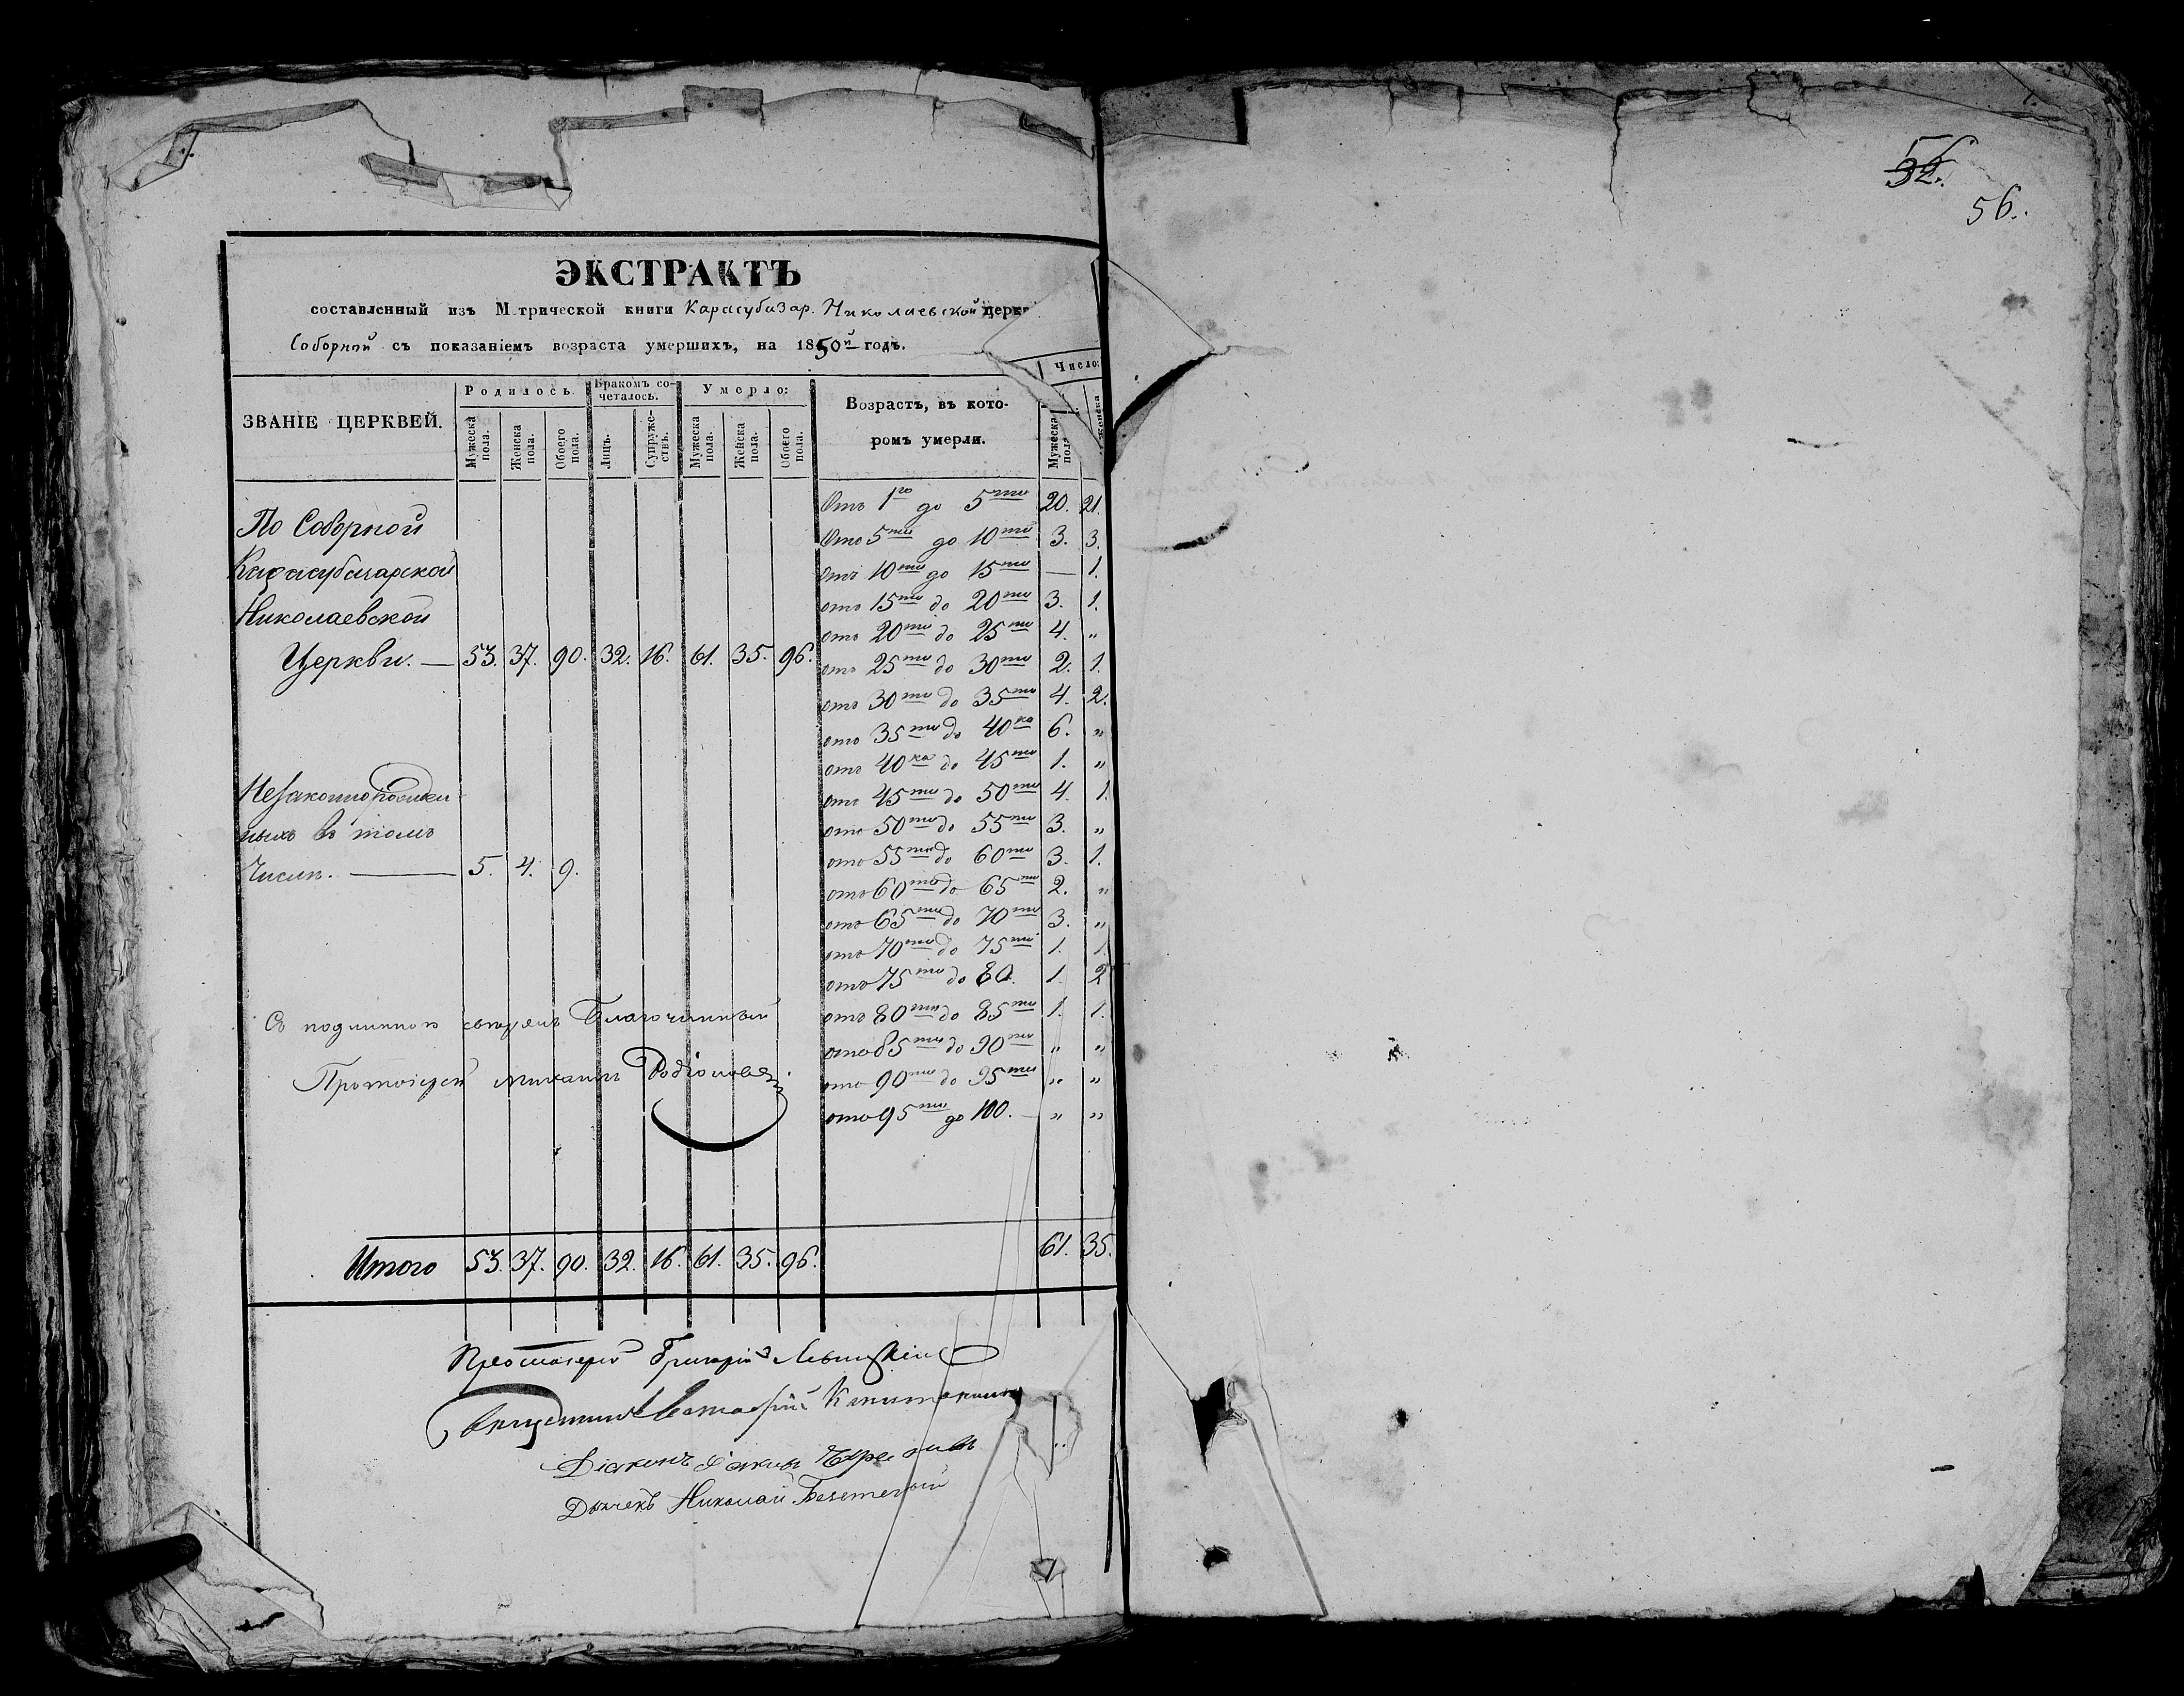 ЭКСТРАКТЪ
составленный изъ М трической книги Карасубазар. Николаевской церкв
Соборной съ показаніемъ возраста умершихъ, на 1850й годъ.
ЗВАНІЕ ЦЕРКВЕЙ. Родилось. Бракомъ сочеталось. Умерло: Возрастъ, въ которомъ умерли. Число:
Мужеска пола. Женска пола. Обоего пола. Лицъ. Супружествъ. Мужеска пола. Женска пола. Обоего пола. Мужеска пола Женска
По Соборной
Карасубазарской
Николаевской
Церкви. — 53. 37. 90. 32. 16. 61. 35. 96.
Незаконнорожден
ныхъ въ томъ
Числѣ. — 5. 4. 9.
Отъ 1го до 5ти 20. 21.
Отъ 5ти до 10ти 3. 3.
Отъ 10ти до 15ти — 1.
отъ 15ти до 20ти 3. 1.
отъ 20ти до 25ти 4. "
отъ 25ти до 30ти 2. 1.
отъ 30ти до 35ти 4. 2.
отъ 35ти до 40ка 6. "
отъ 40ка до 45ти 1. "
отъ 45ти до 50ти 4. 1.
отъ 50ти до 55ти 3. "
отъ 55ти до 60ти 3. 1.
отъ 60ти до 65ти 2. "
отъ 65ти до 70ти 3. "
отъ 70ти до 75ти 1. 1.
отъ 75ти до 80. 1. 2
отъ 80ти до 85ти 1. 1.
отъ 85ти до 90ти " "
отъ 90ти до 95ти " "
отъ 95ти до 100. — " "
Съ подлиннымъ вѣрно Благочинный
Протоіерей Михаилъ Родіоновъ
Итого 53. 37. 90. 32. 16. 61. 35. 96. 61. 35.
Протоіерей Григорій
Діаконъ
Дьячекъ Николай
32.
56.